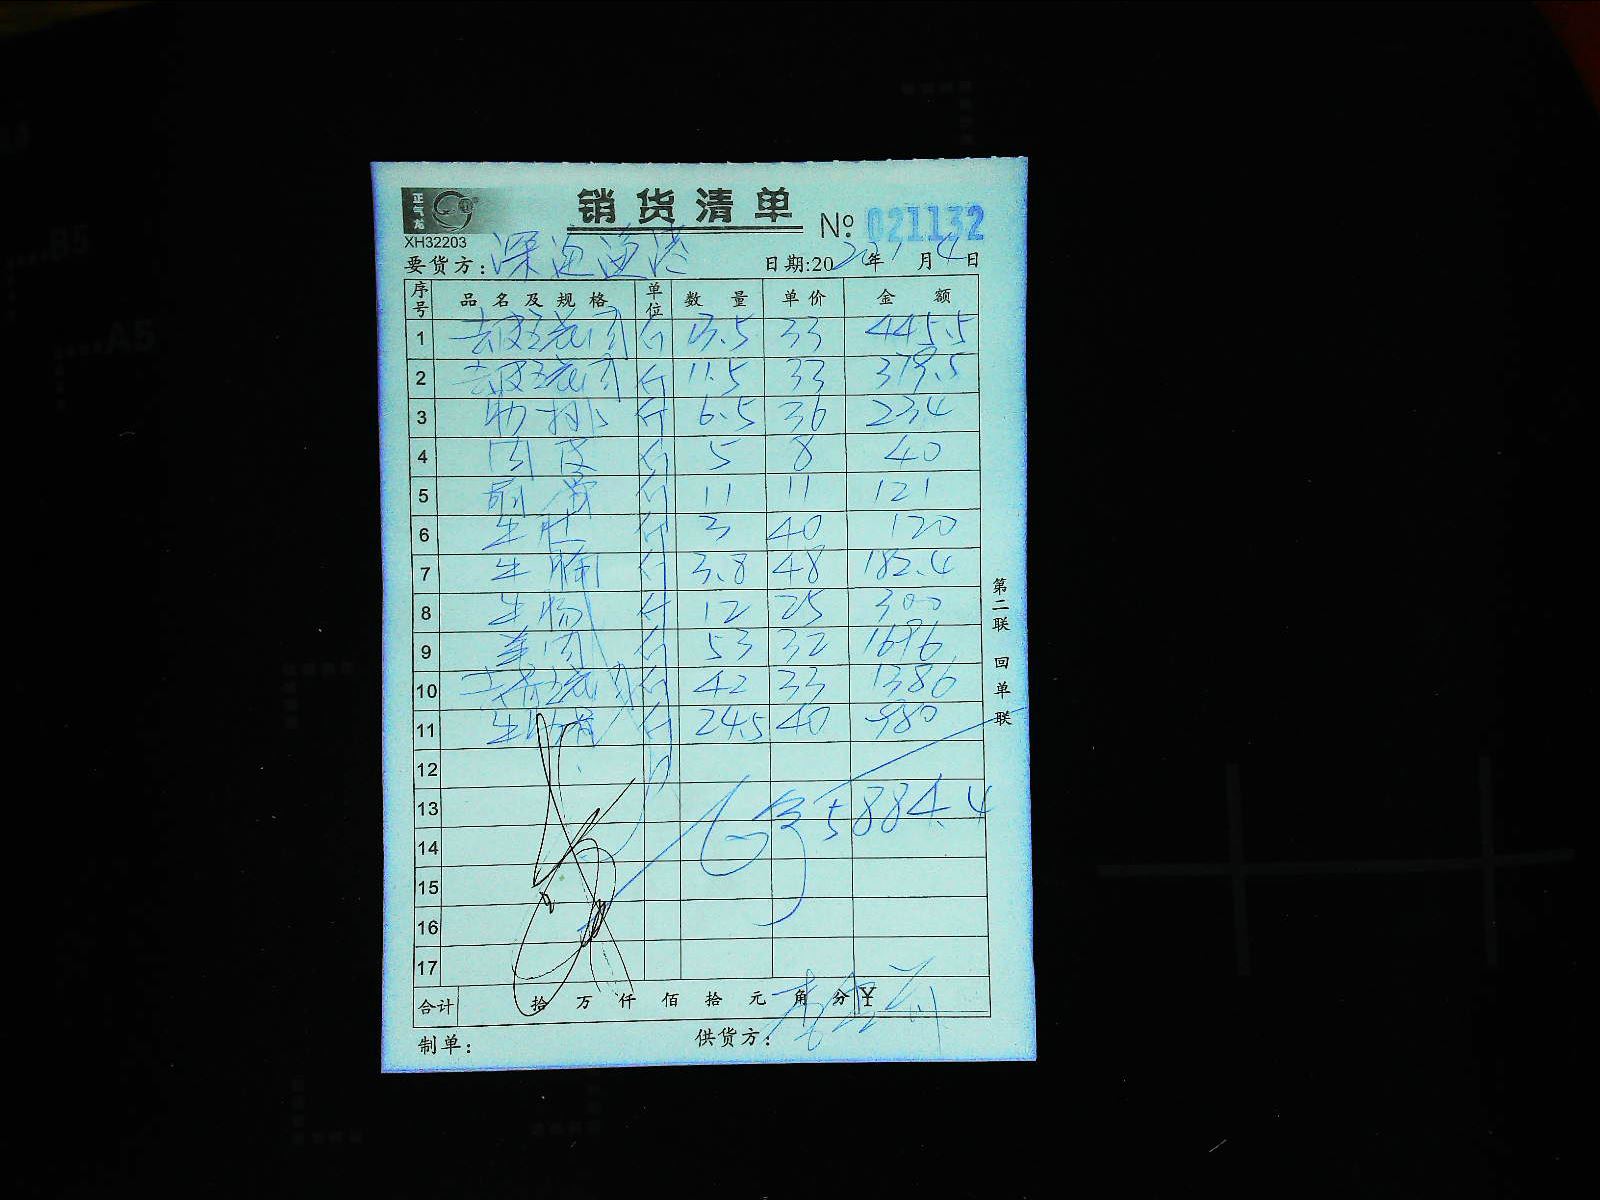 正气龙
销货清单
XH32203
No 021132
要货方: 深海渔港 日期:2020年1月4日
序号 品名及规格 单位 数量 单价 金额
1 去皮五花肉 斤 13.5 33 445.5
2 去皮五花肉 斤 11.5 33 379.5
3 肋排 斤 6.5 36 234
4 肉皮 斤 5 8 40
5 斤 11 11 121
6 生肚 斤 3 40 120
7 生 斤 3.8 48 182.4
8 生肠 斤 12 25 300
9 肉 斤 53 32 1696
10 五花肉 斤 42 33 1386
11 生 斤 24.5 40 980
12
13 5884.4
14
15
16
17
合计 拾 万 仟 佰 拾 元 角 分 ¥
制单: 供货方: 李
第二联 回单联